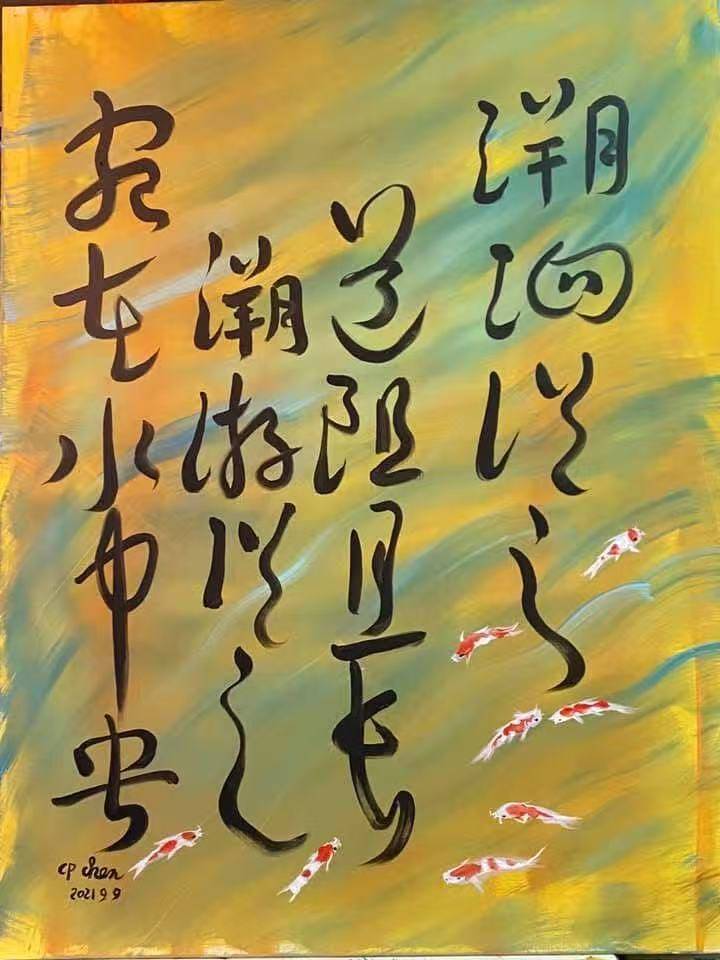 溯洄从之
道阻且长
溯游从之
宛在水中央
CP Chen
2021 9 9